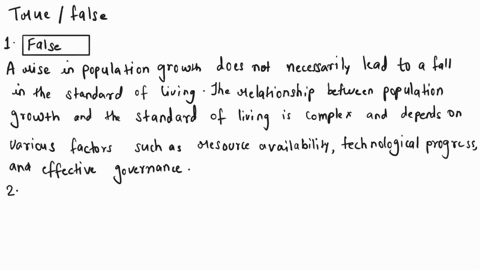 True / false
1. False
A rise in population growth does not necessarily lead to a fall
in the standard of living. The relationship between population
growth and the standard of living is complex and depends on
various factors such as resource availability, technological progress,
and effective governance.
2.